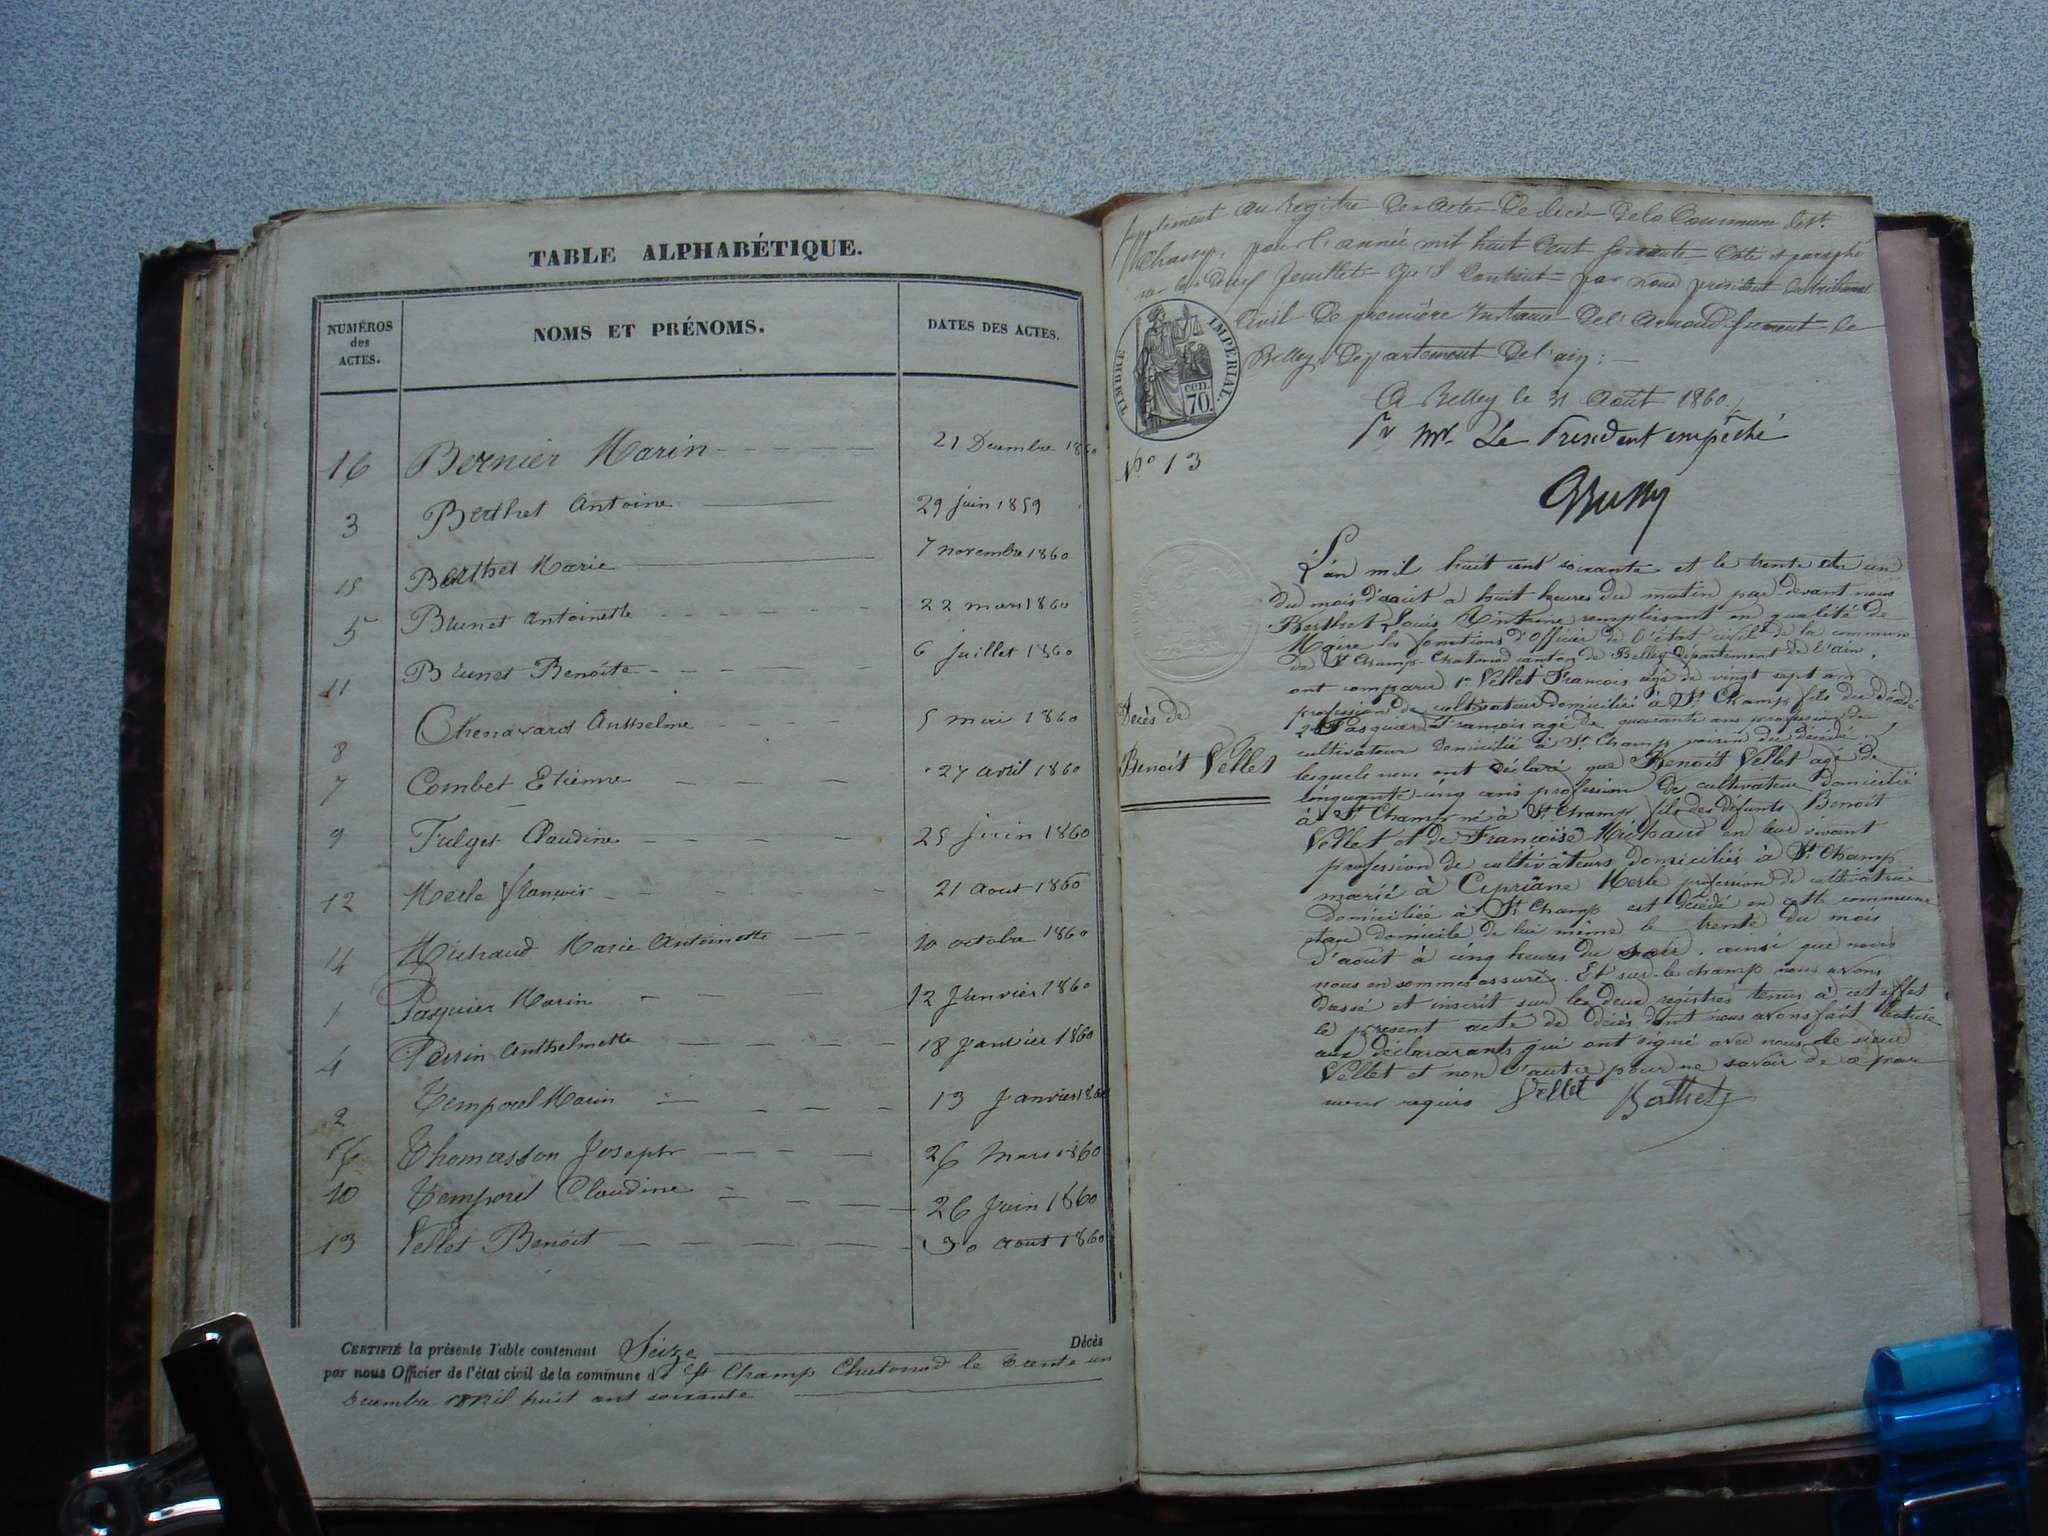 TABLE ALPHABÉTIQUE.
NUMÉROS des ACTES. NOMS ET PRÉNOMS. DATES DES ACTES.
16 Bernier Marin 21 Decembre 1860
3 Berthet Antoine 29 juin 1859
15 Berthet Marie 7 novembre 1860
5 Brunet Antoinette 22 mars 1860
11 Brunet Benoite 6 juillet 1860
8 Chenavard Anthelme 5 mai 1860
7 Combet Etienne 27 avril 1860
9 Fulget Claudine 25 juin 1860
12 Merle françois 21 aout 1860
14 Michaud Marie Antoinette 20 octobre 1860
1 Pasquier Marin 12 Janvier 1860
4 Perrin Anthelmette 18 Janvier 1860
2 Temporel Marin 13 Janvier 1860
6 Thomasson Joseph 26 Mars 1860
10 Temporel Claudine 26 Juin 1860
13 Vellet Benoit 30 aout 1860
CERTIFIÉ la présente Table contenant Seize Décès
par nous Officier de l'état civil de la commune de St Champ Chatonod le trente un
Decembre mil huit cent soixante
au Registre des Actes de décès de la Commune de St
Champ, pour l'année mil huit Cent soixante Coté et paraphé
feuillets qu'il contient par nous président du tribunal
Civil de première instance de l'Arrondissement de
Belley, Département de l'ain :
TIMBRE IMPÉRIAL.
70. cen.
A Belley le 31 Août 1860
Pr Mr Le President empêché
No 13
L'an mil huit cent soixante et le trente et un
du mois d'aout a huit heures du matin par devant nous
Berthet Louis Antoine remplissant en qualité de
Maire les fonctions d'Officier de l'état civil de la commune
de St Champ-Chatonod canton de Belley département de l'ain,
ont comparu 1o Vellet Francois agé de vingt sept ans
profession de cultivateur domicilié à St Champ fils du décédé
2o Pasquier François agé de quarante ans profession de
cultivateur domicilié à St Champ voisin du décédé.
lesquels nous ont déclaré que Benoit Vellet agé de
cinquante-cinq ans profession de cultivateur domicilié
à St Champ né à St Champ fils des défunts Benoit
Vellet et de Françoise Michaud en leur vivant
profession de cultivateurs domiciliés à St Champ
marié à Cipriane Merle profession de cultivatrice
domiciliée à St Champ est décédé en cette commune
au domicile de lui même le trente du mois
d'aout à cinq heures du soir. ainsi que nous
nous en sommes assuré. Et sur-le-champ nous avons
dressé et inscrit sur les deux registres tenus à cet effet
le present acte de décès dont nous avons fait lecture
aux déclarants qui ont signé avec nous le sieur
Vellet et non l'autre pour ne savoir de ce
requis Vellet Berthet
Décès de
Benoit Vellet